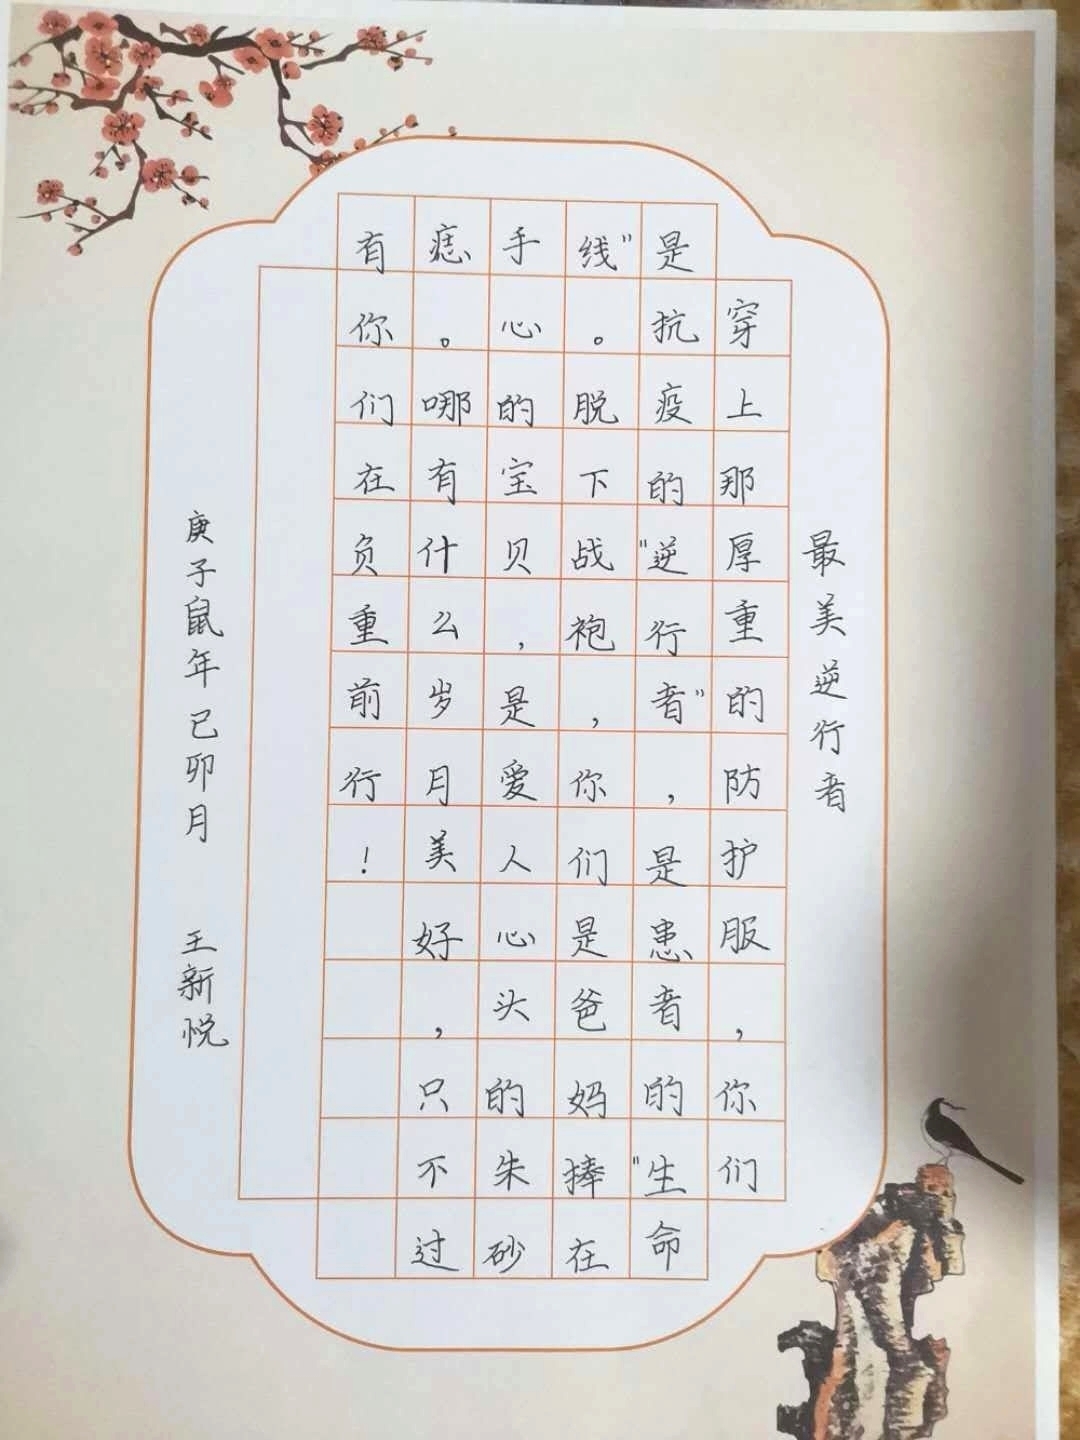 最美逆行者
穿上那厚重的防护服，你们
是抗疫的“逆行者”，是患者的“生命
线”。脱下战袍，你们是爸妈捧在
手心的宝贝，是爱人心头的朱砂
痣。哪有什么岁月美好，只不过
有你们在负重前行！
庚子鼠年已卯月 王新悦